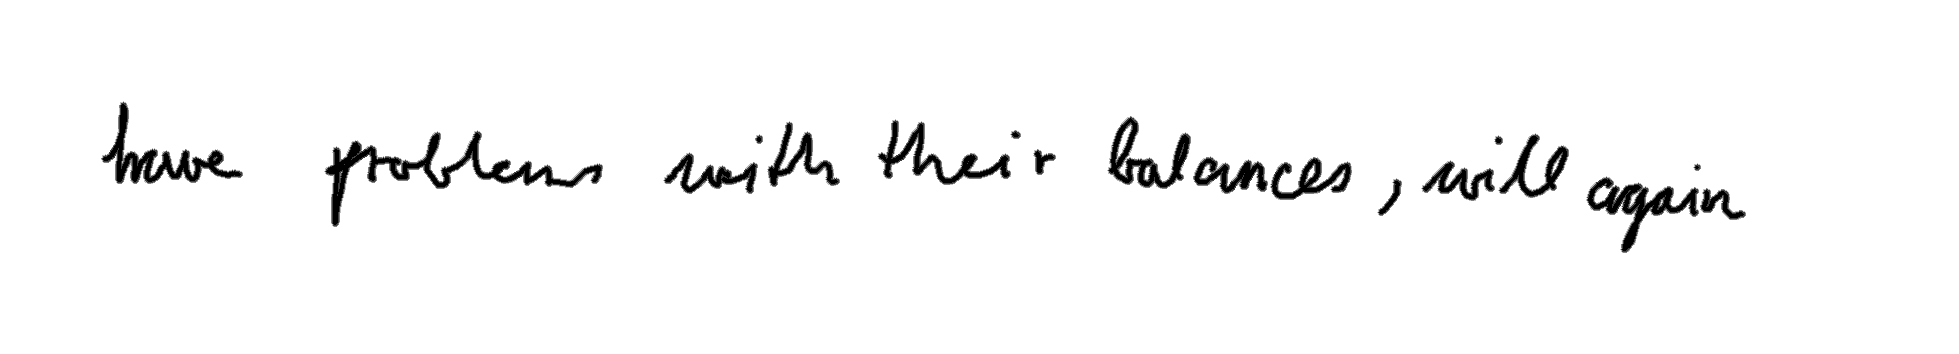 have problems with their balances, will again